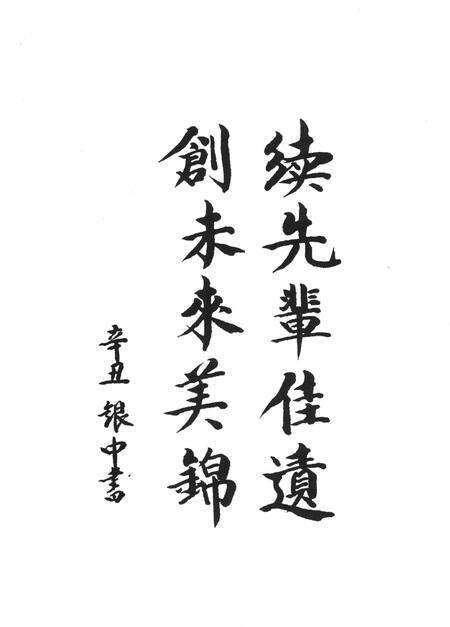 续先輩佳遺
創未來美錦
辛丑 銀中書